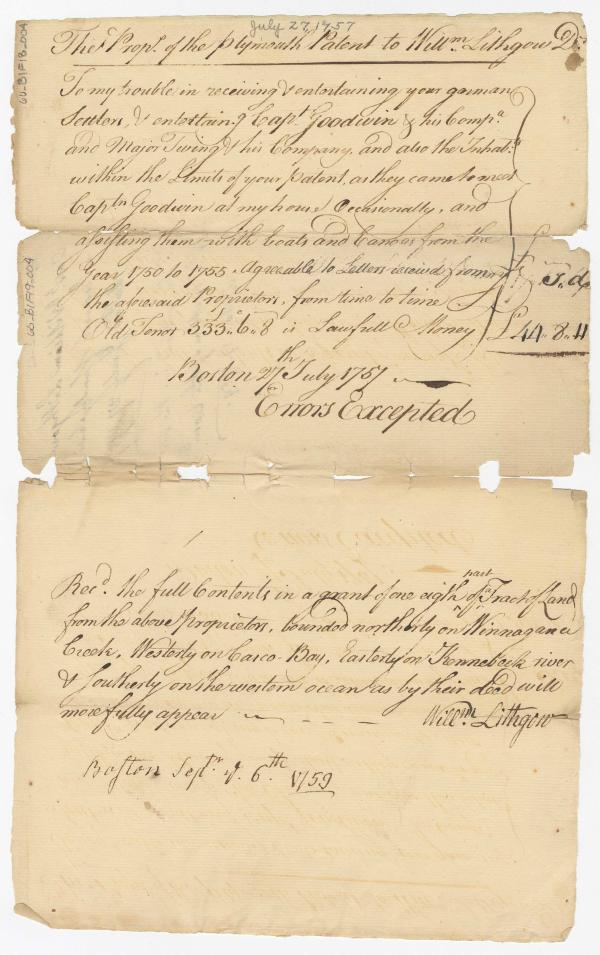 July 27, 1757
The Prop.s of the Plymouth Patent to Will.m Lithgow Dr
To my trouble in receiving & entertaining your german
Settlers, & entertain.g Capt. Goodwin & his Comp.a
and Major Twing & his Company, and also the Inhab.ts
within the Limits of your patent, as they came to meet
Cap.tn Goodwin at my house Occasionally, and
assisting them with boats and Canoes from the
Year 1750 to 1755. Agreeable to Letters received from
the aforesaid Proprietors, from time to time
Old Tenor 333..6..8 is Lawfull Money £44..8..11
Boston 27th July 1757
Errors Excepted
Rec.d the full Contents in a grant of one eigth part of a Tract of Land
from the above Proprietors, bounded northerly on Winnagance
Creek, Westerly on Casco-Bay, Easterly on Kennebeck river
& Southerly on the western ocean as by their deed will
more fully appear - - - Will.m Lithgow
Boston Sept.r ye 6.th 1759
60-B1F18-004
60-B1F19-004